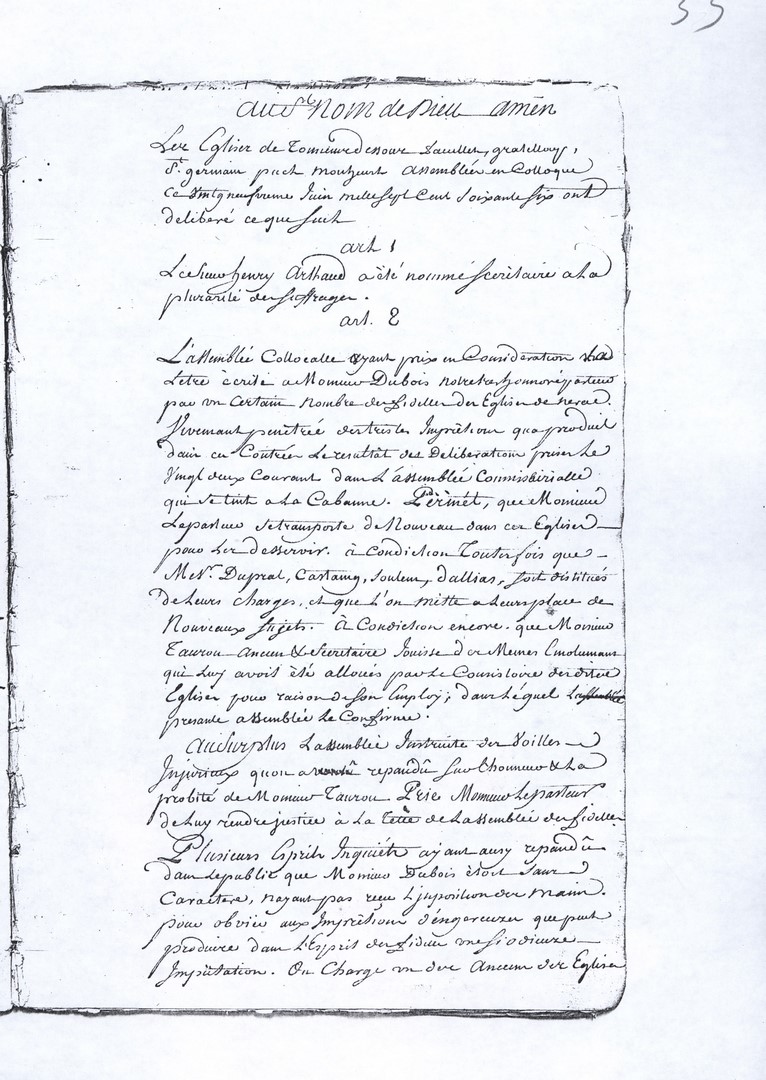 55
au St nom de Dieu amen
Les Eglises de Tonneins dessous vacullen, gratelloup,
St. germain puch monheurt assemblées en Colloque
Ce vintgneufvieme Juin mille sept Cent soixante six ont
deliberé ce que suit
art 1
Le sieur henry Arthaud a èté nommé secritaire a la
pluraritè des suffrages.
art. 2
L'assemblée Collocalle ayant prix en Consideration la
Letre ècrite a Monsieur Dubois notre tres honnoré pasteur
par un Certain Nombre des fidelles des Eglises de nerac.
Vivemant penètrée des tristes Impretions qua produit
dans ces Contrées Le resultat des Deliberations prises Le
Vingt deux Courant dans L'assemblée Consistoirialle
qui se tint a la Cabanne. Permet, que Monsieur
Le pasteur se transporte de Nouveau dans ces Eglises
pour Les desservir. à Condiction Toutes fois que
Mes.rs Duprat, Castaing, souleur, dallias, soit distitués
de Leurs charges, et que L'on mitte a Leurs place de
Nouveaux sujets. À Condiction encore. que Monsieur
Taurou ancien & secretaire Jouisse des Memes Emolumans
qui Luy avoit èté alloués par Le Consistoire des dites
Eglises pour raison de son Employ; dans Lequel
presante assemblée Le Confirme.
Au surplus L'assemblée Instruite des Voilles
Injurieux quon a repandû sur L'honneur & La
probité de Monsieur Taurou Prie Monsieur Le pasteur
de Luy rendre justice à La Tette de L'assemblée des fidelles
Plusieurs Esprits Inquiéts ayant aussy repandû
dans Le public que Monsieur Dubois ètoit sans
Caractere, nayant pas reçu L'jnposition des mains.
pour obvier aux Impretions dèngereuzes que peut
produire dans L'Esprit des fidelles une si odieuze
Impùtation. On Charge un des Anciens des Eglises